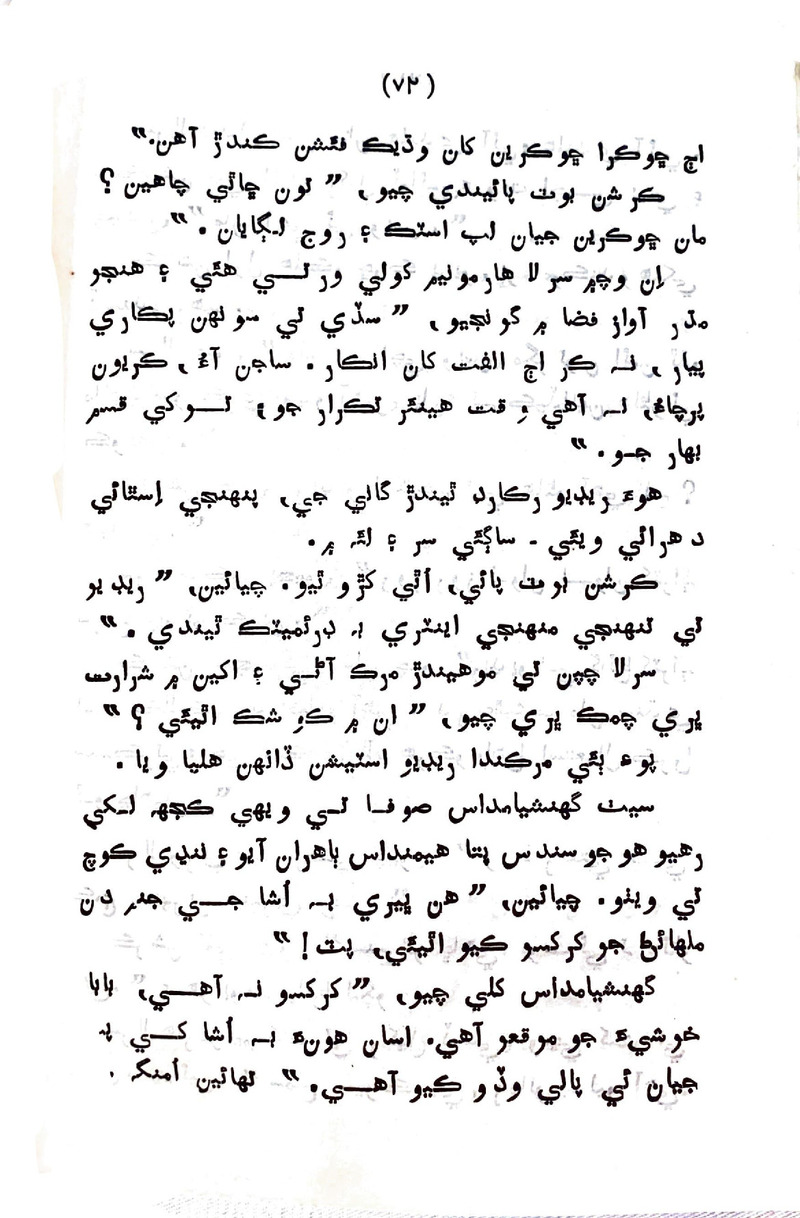 (۷۲)
اڄ ڇوڪرا ڇوڪرين کان وڌيڪ فئشن ڪندڙ آهن.”
ڪرشن بوٽ پائيندي چيو، ” تون ڇاٿي چاهين ؟
مان ڇوڪرين جيان لپ اسٽڪ ۽ روج لڳايان . “
اِن وچ۾ سرلا هارمونيم کولي ورتي هئي ۽ هنجو
مڌر آواز فضا ۾ گونجيو، ” سڏي ٿي سونهن پڪاري
پيار، نہ ڪر اڄ الفت کان انڪار . ساجن آءُ، ڪريون
پرچاءُ، نہ آهي وِقت هينئر تڪرار جو؛ توکي قسم
بهار جو . “
هوءَ ريڊيو رڪارڊ ٿيندڙ گاني جي، پنهنجي اِستائي
دهرائي ويئي . ساڳئي سر ۽ لئہ ۾.
ڪرشن بوٽ پائي، اُٿي کڙو ٿيو. چيائين، ” ريڊيو
تي تنهنجي منهنجي اينٽري بہ ڊرئميٽڪ ٿيندي . “
سرلا چپن تي موهيندڙ مرڪ آڻي ۽ اکين ۾ شرارت
ڀري چمڪ ڀري چيو، ” ان ۾ ڪوِ شڪ اٿيئي ؟ “
پوءِ ٻئي مرڪندا ريڊيو اسٽيشن ڏانهن هليا ويا .
سيٺ گهنشيامداس صوفا تي ويهي ڪجهہ لکي
رهيو هو جو سندس پتا هيمنداس ٻاهران آيو ۽ ننڍي ڪوچ
تي ويٺو. چيائين، ” هن ڀيري بہ اُشا جي جنم دن
ملهائڻ جو کرکسو کيو اٿيئي، پٽ ! “
گهنشيامداس کلي چيو، ” کرکسو نہ آهي، بابا
خوشيءَ جو موقعو آهي. اسان هونءَ بہ اُشا کي پٽ
جيان ئي پالي وڏو ڪيو آهي. “ تهائين اُمنگہ .